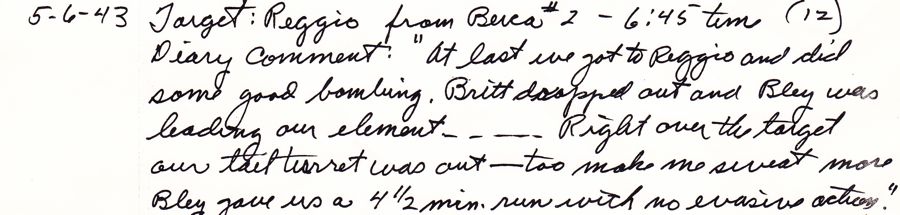 5-6-43 Target: Reggio from Berca #2 - 6:45 time (12)
Diary Comment: "At last we got to Reggio and did
some good bombing. Britt dropped out and Bley was
leading our element_ _ ___ Right over the target
our tail turret was out—too make me sweat more
Bley gave us a 4 1/2 min. run with no evasive action."